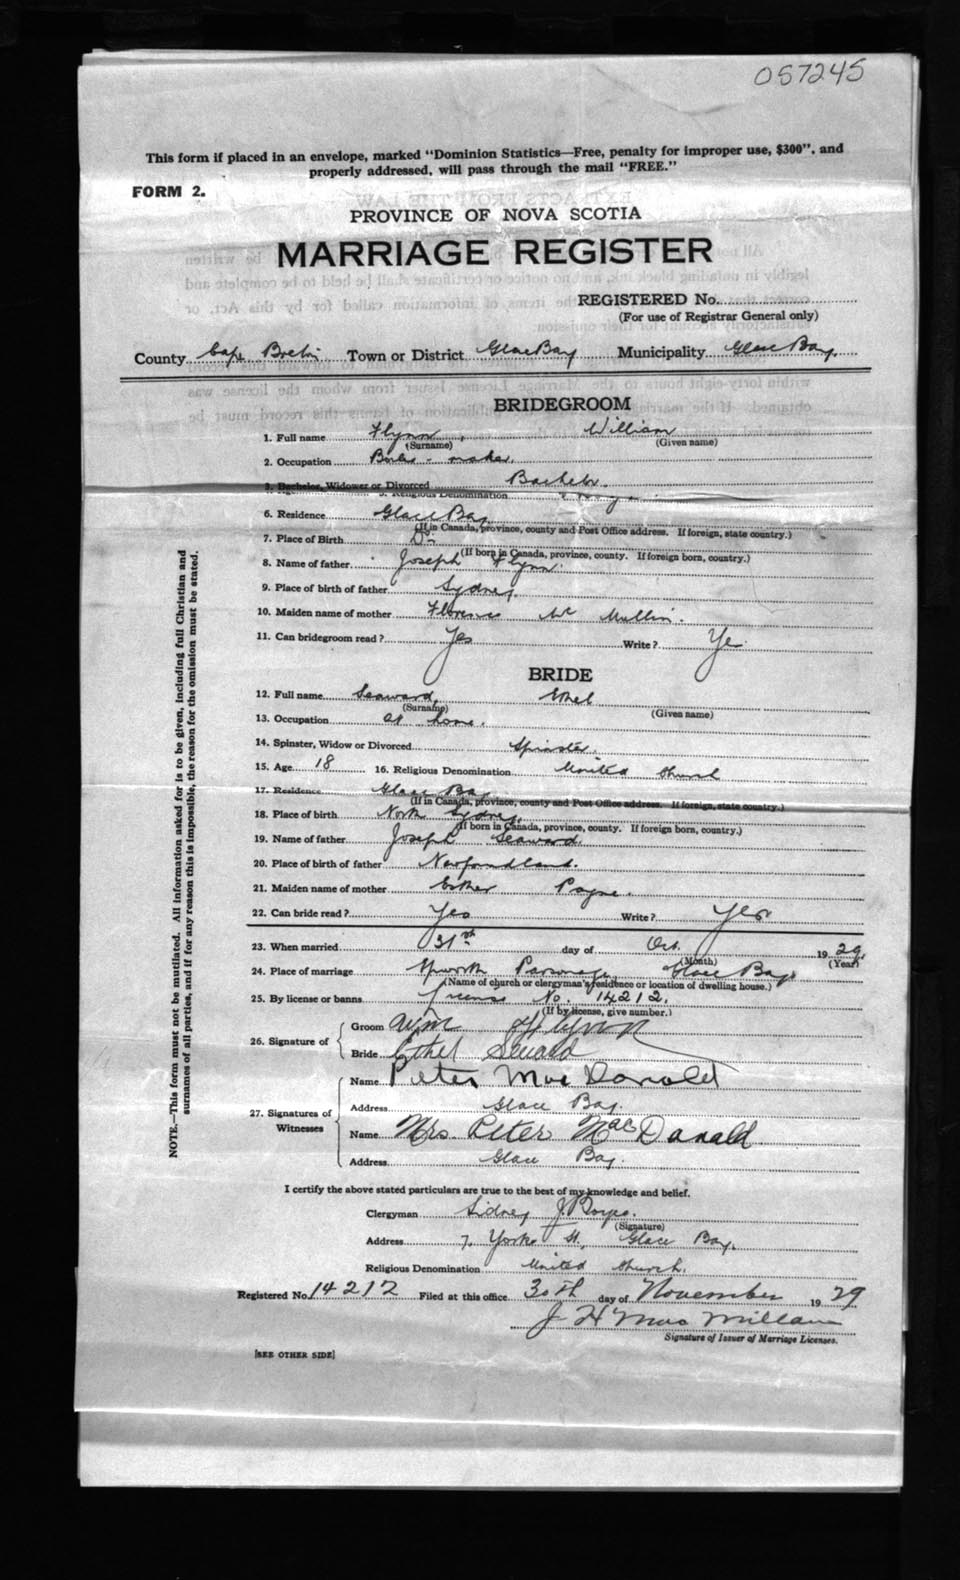 057245
This form if placed in an envelope, marked "Dominion Statistics—Free, penalty for improper use, $300", and
properly addressed, will pass through the mail "FREE."
FORM 2.
PROVINCE OF NOVA SCOTIA
MARRIAGE REGISTER
REGISTERED No.
(For use of Registrar General only)
County Cape Breton Town or District Glace Bay Municipality Glace Bay.
BRIDEGROOM
1. Full name Flynn, William
(Surname) (Given name)
2. Occupation Boiler-maker.
3. Bachelor, Widower or Divorced Bachelor.
5. Religious Denomination
6. Residence Glace Bay
(If in Canada, province, county and Post Office address. If foreign, state country.)
7. Place of Birth Do.
(If born in Canada, province, county. If foreign born, country.)
8. Name of father Joseph Flynn.
9. Place of birth of father Sydney.
10. Maiden name of mother Florence Mc Mullin.
11. Can bridegroom read? Yes Write? Yes
BRIDE
12. Full name Seaward, Ethel
(Surname) (Given name)
13. Occupation at home.
14. Spinster, Widow or Divorced Spinster.
15. Age 18 16. Religious Denomination United Church
17. Residence Glace Bay
(If in Canada, province, county and Post Office address. If foreign, state country.)
18. Place of birth North Sydney.
(If born in Canada, province, county. If foreign born, country.)
19. Name of father Joseph Seaward.
20. Place of birth of father Newfoundland.
21. Maiden name of mother Esther Payne.
22. Can bride read? Yes Write? Yes
23. When married 31st day of Oct. 1929.
(Month) (Year)
24. Place of marriage Epworth Parsonage, Glace Bay.
(Name of church or clergyman's residence or location of dwelling house.)
25. By license or banns License No. 14212.
(If by license, give number.)
26. Signature of
Groom Wm Flynn
Bride Ethel Seward
27. Signatures of Witnesses
Name Peter MacDonald
Address Glace Bay.
Name Mrs. Peter MacDonald
Address Glace Bay.
I certify the above stated particulars are true to the best of my knowledge and belief.
Clergyman Sidney J. Boyce.
(Signature)
Address 7, York St., Glace Bay.
Religious Denomination United Church.
Registered No. 14212 Filed at this office 30th day of November 1929
J H MacMillan
Signature of Issuer of Marriage Licenses.
[SEE OTHER SIDE]
NOTE.—This form must not be mutilated. All information asked for is to be given, including full Christian and
surnames of all parties, and if for any reason this is impossible, the reason for the omission must be stated.